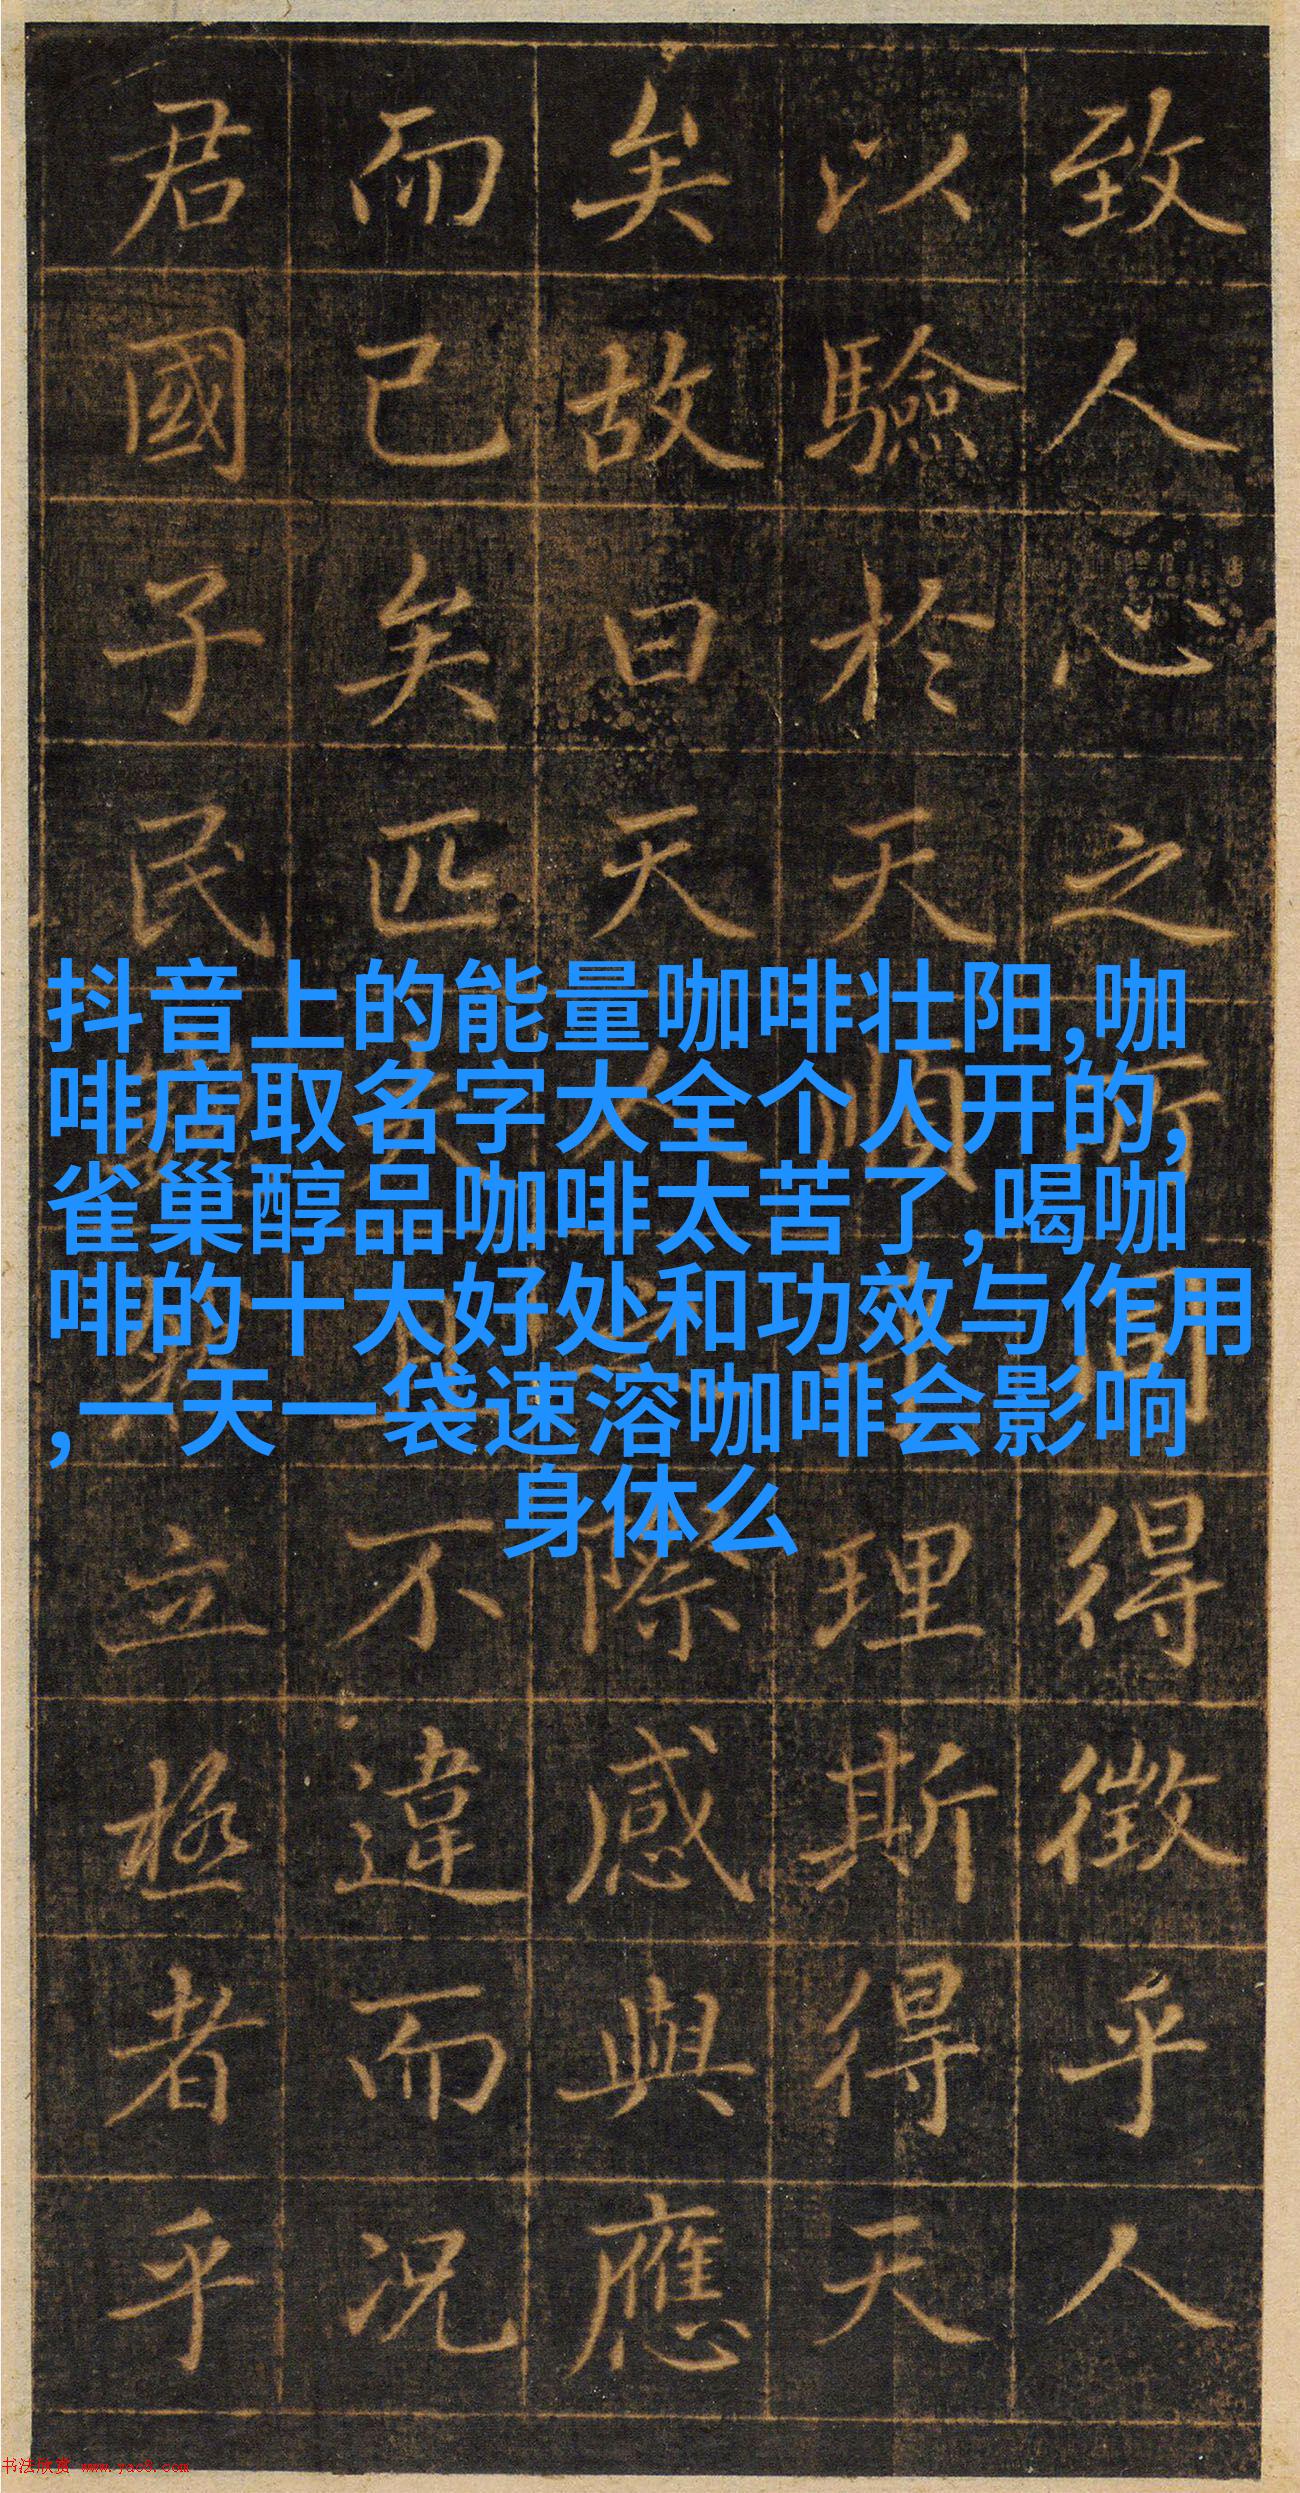 致人心之所同得徵乎人
以驗於天順理斯得天
矣故曰天人之際感與應
而已矣匹夫且不違而況
君國子民立極者乎
抖音上的能量咖啡壮阳,咖
啡店取名字大全个人开的,
雀巢醇品咖啡太苦了,喝咖
啡的十大好处和功效与作用
,一天一袋速溶咖啡会影响
身体么
书法欣赏 www.yac8.com